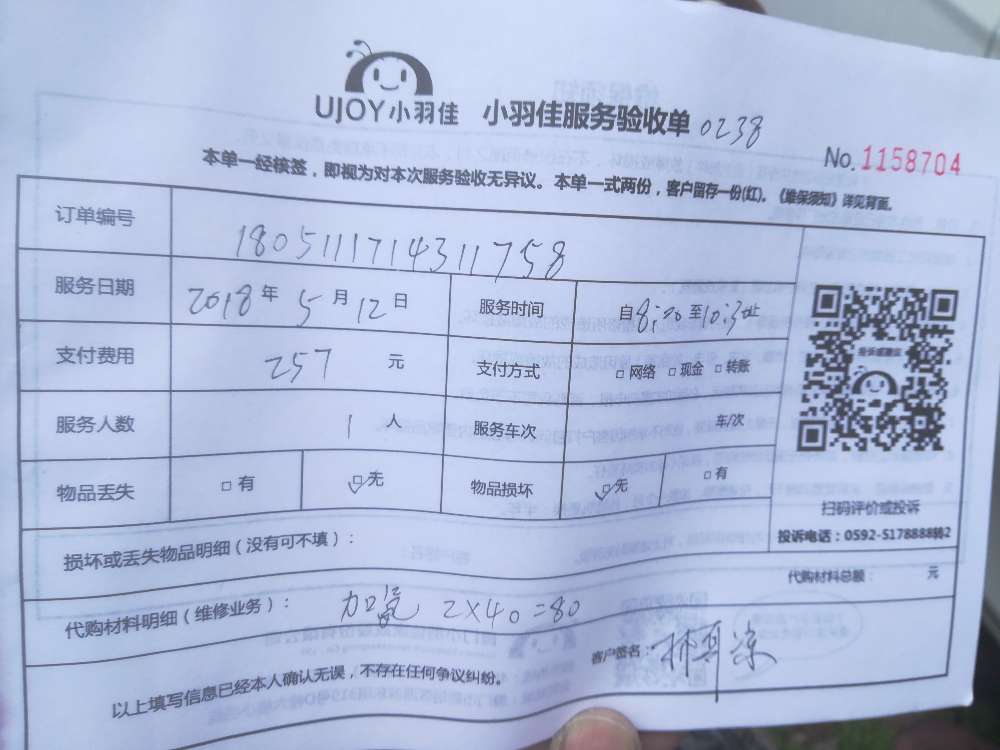 UJOY小羽佳 小羽佳服务验收单 0238
No. 1158704
本单一经核签，即视为对本次服务验收无异议。本单一式两份，客户留存一份(红)。《维保须知》详见背面。
订单编号 180511171431758
服务日期 2018年5月12日 服务时间 自8:20至10:30止
支付费用 257 元 支付方式 □网络 □现金 □转账
服务人数 1 人 服务车次 车/次
物品丢失 □有 ☑无 物品损坏 ☑无 □有
扫码评价或投诉
投诉电话：0592-5178888转2
损坏或丢失物品明细（没有可不填）：
代购材料总额： 元
代购材料明细（维修业务）： 加氟 2×40=80
客户签名：
以上填写信息已经本人确认无误，不存在任何争议纠纷。